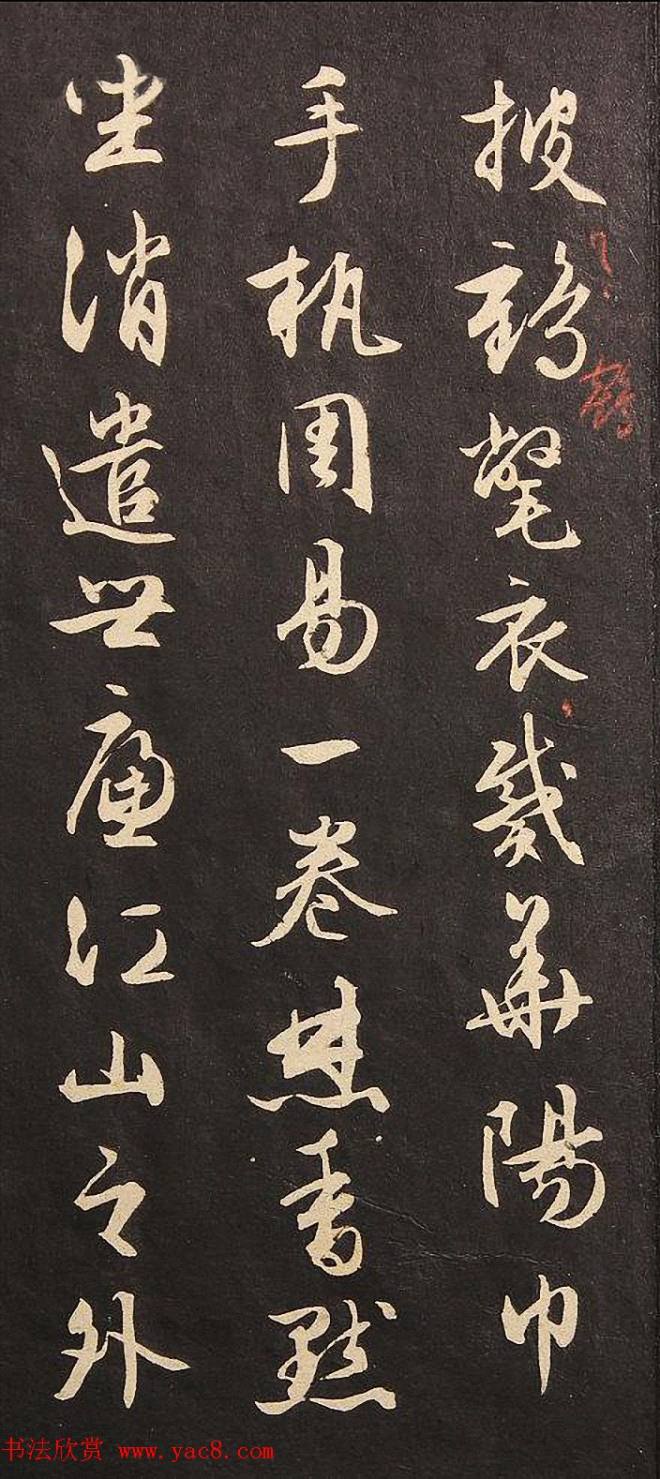 披鶴氅衣戴華陽巾
手執周易一卷焚香默
坐消遣世慮江山之外
鶴
书法欣赏 www.yac8.com